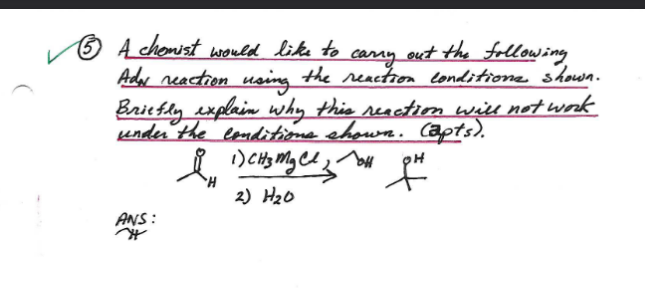 ✓ ⑤ A chemist would like to carry out the following
AdN reaction using the reaction conditions shown.
Briefly explain why this reaction will not work
under the conditions shown. (2pts).
O H 1) CH3MgCl, OH OH
2) H2O
ANS: